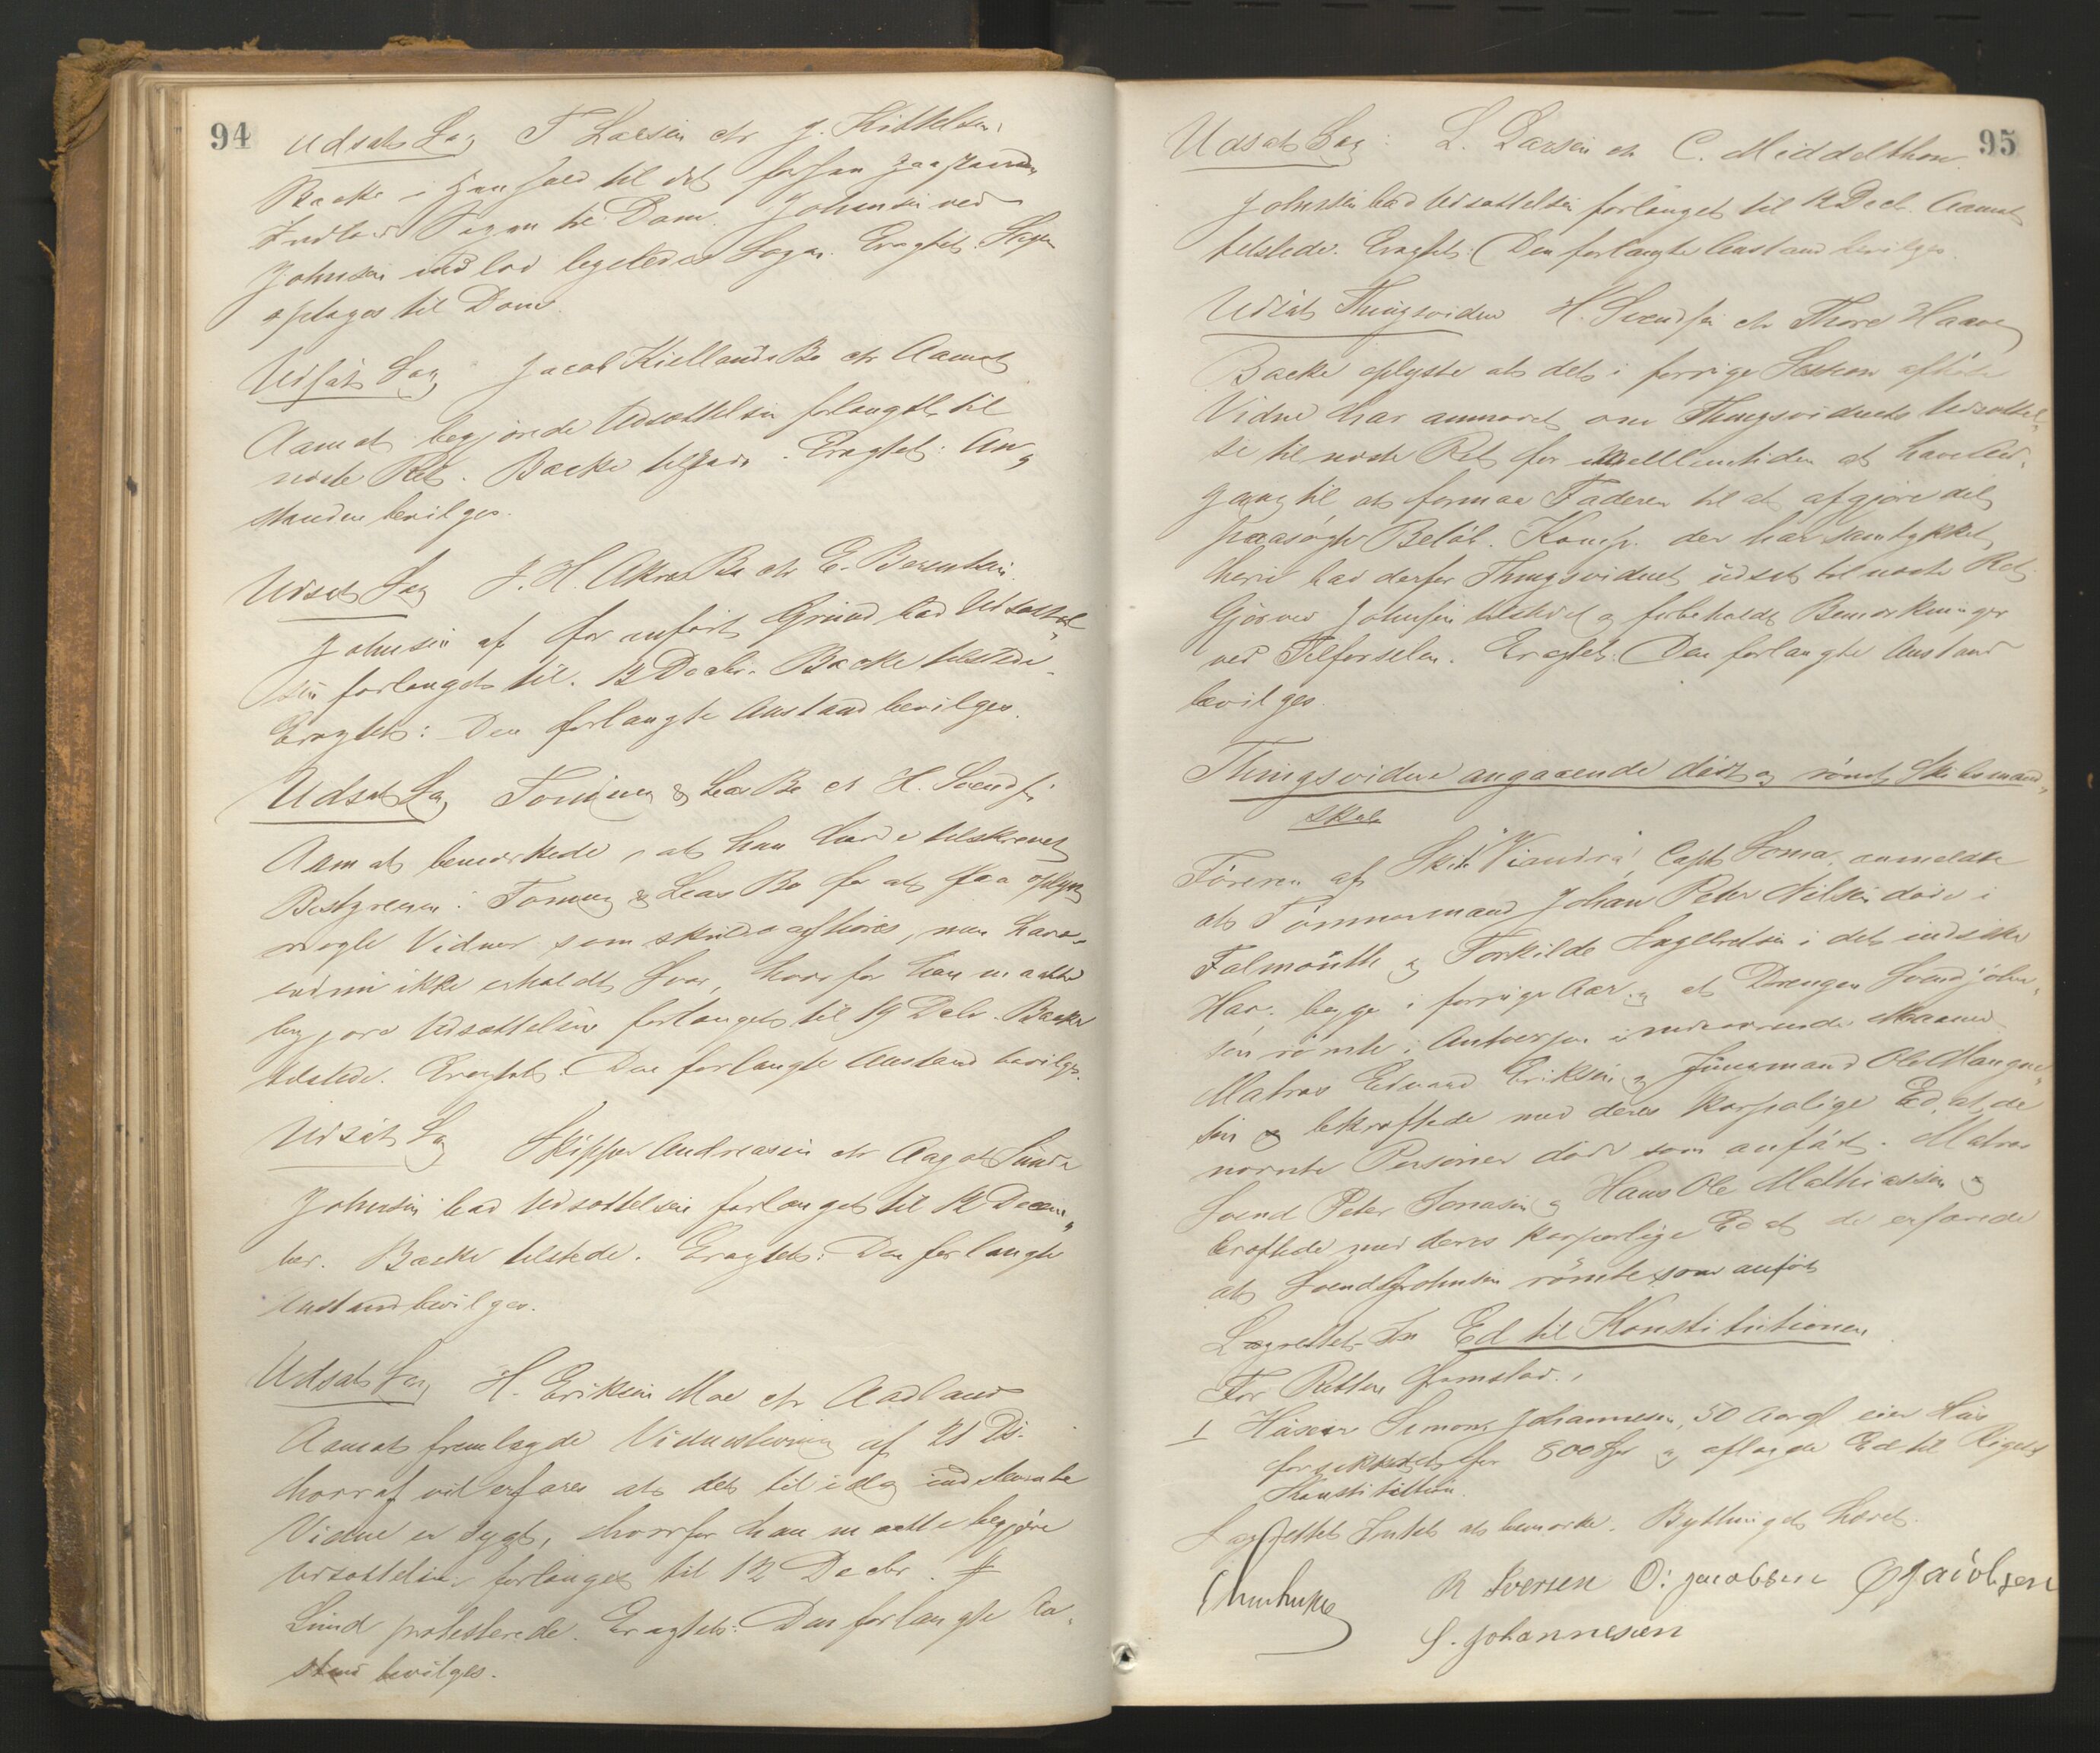 94
Udsat Sag T Larsen ctr J. Kittelsen.
Backe i Henhold til det forhen paastaaede
Indlod Sagen til Dom. Johnsen ved
Johnsen indlod ligeledes Sagen. Eragtet: Sagen
optages til Dom.
Udsat Sag Jacob Kiellands Bo ctr Aamot
Aamot begjærede Udsættelsen forlænget til
næste Ret. Backe tilstede. Eragtet: An-
standen bevilges.
Udsat Sag J. H. Akres Bo ctr E. Berentsen.
Johnsen af før anført Grund bad Udsættel-
sen forlænget til 12 Decbr. Backe tilstede.
Eragtet: Den forlangte Anstand bevilges.
Udsat Sag Tonning & Leas Bo ctr H. Svendsen
Aamot bemærkede, at han havde tilskrevet
Bestyreren i Tonning & Leas Bo for at faa oplyst
nogle Vidner som skulde afhøres, men havde
endnu ikke erholdt Svar, hvorfor han maatte
begjære Udsættelsen forlænget til 19 Decbr. Backe
tilstede. Eragtet: Den forlangte Anstand bevilges.
Udsat Sag Skipper Andreasen ctr Aagot Sunde
Johnsen bad Udsættelsen forlænget til 12 Decem-
ber. Backe tilstede. Eragtet: Den forlangte
Anstand bevilges.
Udsat Sag H. Eriksen Moe ctr Aadland
Aamot fremlagde Vidnestevning af 21 Ds.
hvoraf vil erfares at det til idag indstevnte
Vidne er sygt, hvorfor han maatte begjære
Udsættelsen forlænget til 12 Decbr.
Lund protesterede. Eragtet: Den forlangte An-
stand bevilges.
95
Udsat Sag: L. Larsen ctr C. Middelthon.
Johnsen bad Udsættelsen forlænget til 12 Decb. Aamot
tilstede. Eragtet: Den forlangte Anstand bevilges.
Udsat Thingsvidne H. Svendsen ctr Thore Haave
Backe oplyste at det i forrige Session afhørte
Vidne har anmodet om Thingsvidnets Udsættel-
se til næste Ret for imellemtiden at have Ad-
gang til at formaa Faderen til at afgjøre det
paasøgte Beløb. Komp. der har samtykket
heri bad derfor Thingsvidnet udsat til næste Ret
Gjør ved Johnsen tilstede og forbeholdt Bemærkninger
ved Tilførselen. Eragtet: Den forlangte Anstand
bevilges.
Thingsvidne angaaende dødt og rømt Skibsmand-
skab
Føreren af Skib "Viandra", Capt Soma, anmeldte
at Tømmermand Johan Peter Nilsen døde i
Falmouth og Torkilde Ingebretsen i det indiske
Hav, begge i forrige Aar, og at Drengen Svend John-
sen rømte i Antverpen i nærværende Maaned
Matros Edvard Eriksen og Jungmand Ole Mangne-
sen bekræftede med deres korporlige Ed, at de
nævnte Personer døde som anført. Matros
Svend Peter Jonasen og Hans Ole Mathiassen
bekræftede med deres korporlige Ed at de erfarede
at Svend Johnsen rømte som anført
Lagrettet In Ed til Konstitutionen
For Retten fremstod.,
1 Huseier Simon Johannesen, 50 Aar gl eier Hus
forsikkret for 800 Spd og aflagde Ed til Rigets
Konstitution.
Lagrettet Intet at bemærke. Rettinget hævet.
R Iversen O. Jacobsen O Jacobsen
S. Johannesen